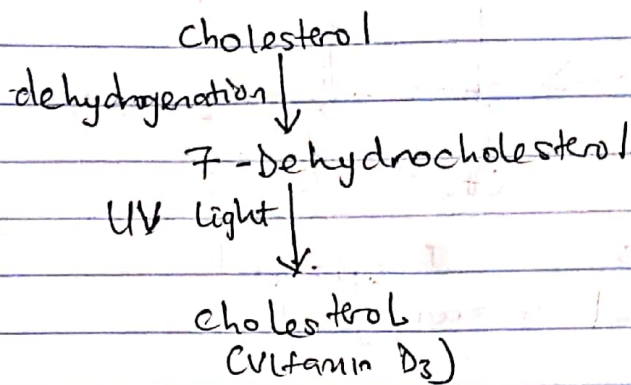 Cholesterol
dehydrogenation
7-Dehydrocholesterol
UV light
Cholesterol
(Vitamin D3)